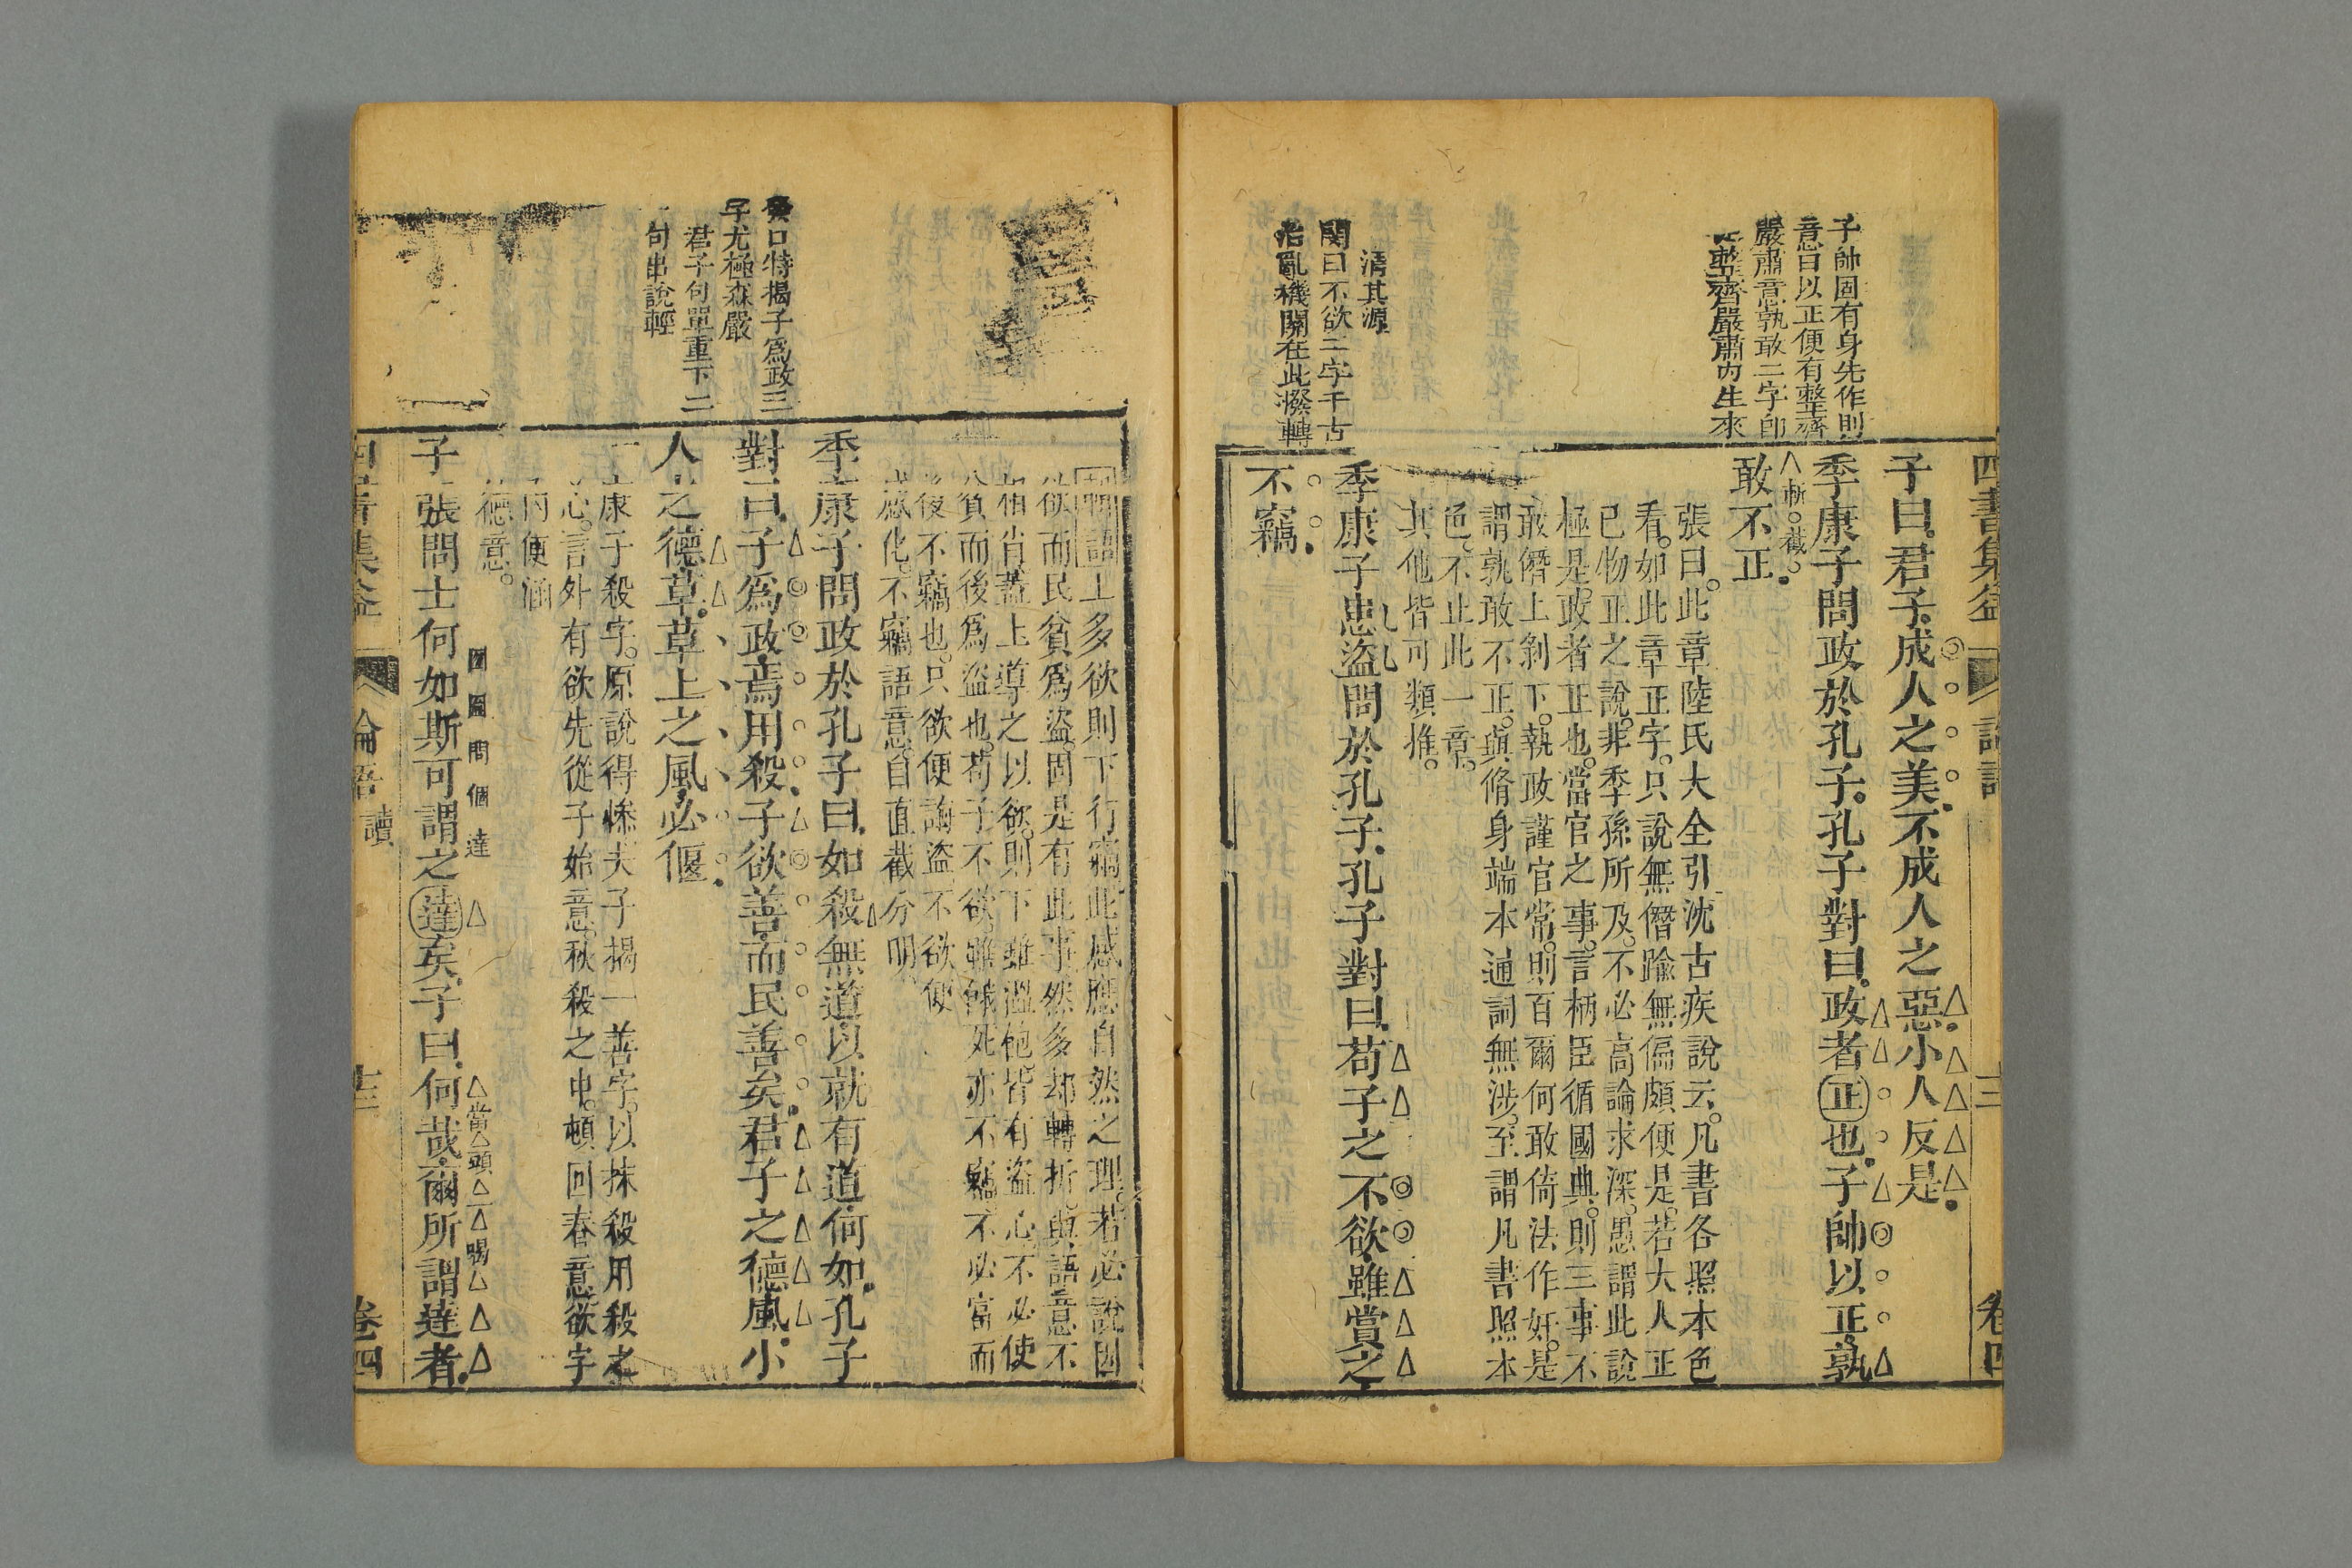 四書集益
卷四
子帥固有身先作則
意曰以正便有整齊
嚴肅意孰敢二字卽
整齊嚴肅內生來
清其源
閔曰不欲二字千古
治亂機關在此撥轉
子曰君子成人之美不成人之惡小人反是
季康子問政於孔子孔子對曰政者正也子帥以正孰
斬截
敢不正
張曰此章陸氏大全引沈古疾說云凡書各照本色
看如此章正字只說無僭踰無偏頗便是若大人正
已物正之說非季孫所及不必高論求深愚謂此說
極是政者正也當官之事言柄臣循國典則三事不
敢僭上剝下執政謹官常則百爾何敢倚法作奸是
謂孰敢不正與脩身端本通詞無涉至謂凡書照本
色不止此一章
其他皆可類推
季康子患盜問於孔子孔子對曰苟子之不欲雖賞之
不竊
特揭子爲政三
字尤極森嚴
君子句單重下二
句串說輕
語上多欲則下行竊此感應自然之理若必說因
欲而民貧爲盜固是有此事然多却轉折與語意不
相肖蓋上導之以欲則下雖溫飽皆有盜心不必使
貧而後爲盜也苟子不欲雖餓死亦不竊不必富而
後不竊也只欲便誨盜不欲便
感化不竊語意自直截分明
季康子問政於孔子曰如殺無道以就有道何如孔子
對曰子爲政焉用殺子欲善而民善矣君子之德風小
人之德草草上之風必偃
康子殺字原說得慘夫子揭一善字以抹殺用殺之
心言外有欲先從子始意秋殺之中頓回春意欲字
內便涵
德意
問個達
當頭一喝
子張問士何如斯可謂之達矣子曰何哉爾所謂達者
論語
讀
卷四